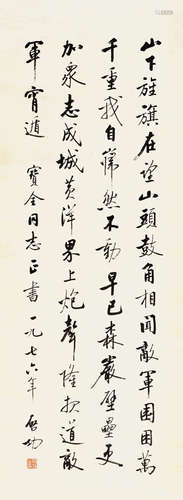 山下旌旗在望山頭鼓角相聞敵軍圍困萬
千重我自巋然不動早已森嚴壁壘更
加衆志成城黃洋界上炮聲隆報道敵
軍宵遁 寶全同志正書 一九七六年 啓功